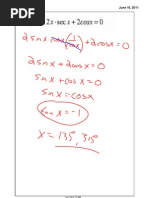 June 10, 2011
2x · sec x + 2cosx = 0
2 sin x cosx (1/cosx) + 2cosx = 0
2sinx + 2cosx = 0
sinx + cosx = 0
sinx = cosx
tan x = -1
x = 135°, 315°